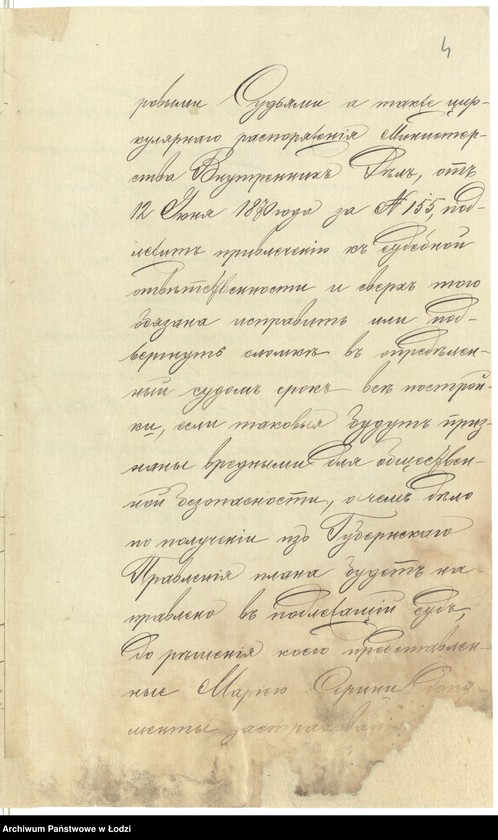 4
ровыми Судьями а также цир-
кулярнаго распоряженія Министер-
ства Внутреннихъ Дѣлъ, отъ
12 Іюня 1880 года за № 155, под-
лежитъ привлеченію къ судебной
отвѣтственности и сверхъ того
обязана исправить или под-
вергнуть сломкѣ въ опредѣлен-
ный судомъ срокъ всѣ построй-
ки, если таковыя будутъ приз-
наны вредными для обществен-
ной безопасности, о чемъ дѣло
по полученіи изъ Губернскаго
Правленія плана будетъ на-
правлено въ подлежащій судъ,
до рѣшенія коего представлен-
ные Маріею доку-
менты
Archiwum Państwowe w Łodzi